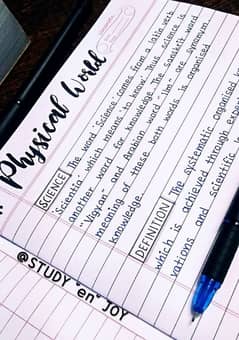 Physical World
SCIENCE The word 'Science' comes from a latin verb
'Scientia' which means 'to know'. Thus science is
another word for knowledge. The sanskrit word
"Vigyan" and Arabian word "Ilm" are synonym
meaning of these both words is organised
knowledge.
DEFINITION The systematic organised k
which is achieved through exper
vations and scientific
is know
@STUDY "en" JOY